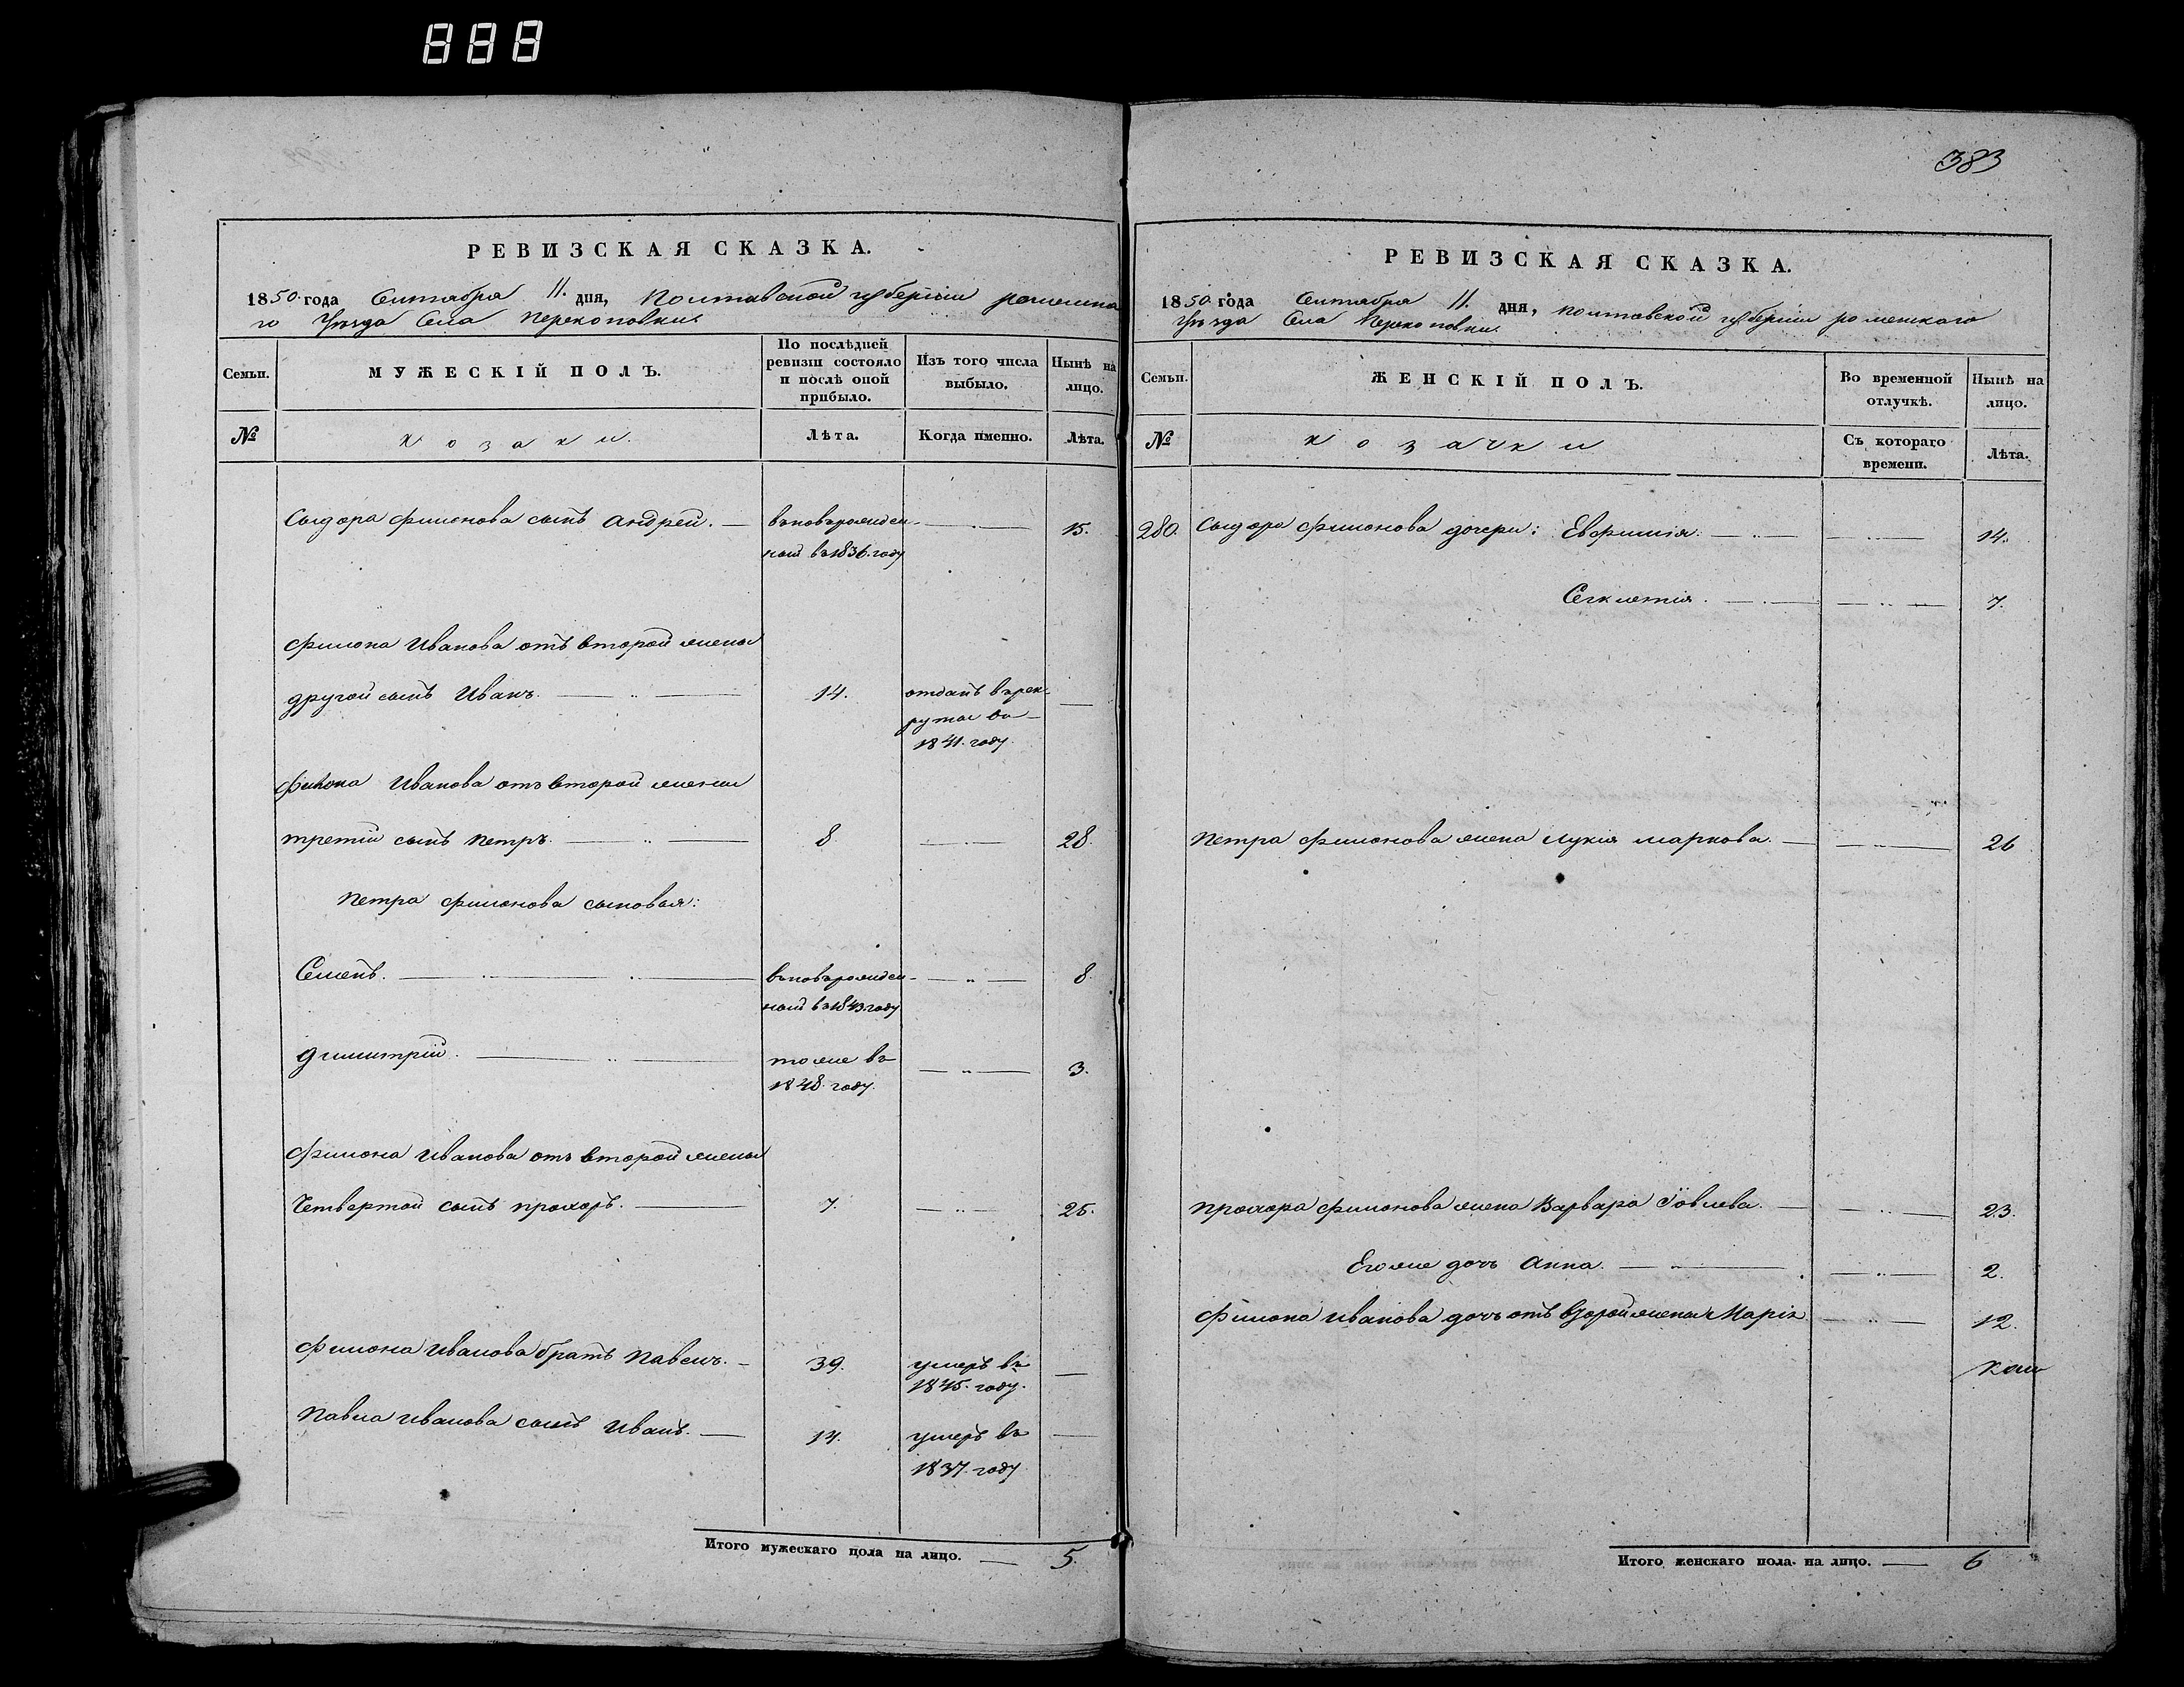 888
РЕВИЗСКАЯ СКАЗКА.
1850 года Сентября 11. дня, Полтавской губерніи роменска
го Уѣзда Села Перекоповки.
Семьи.
МУЖЕСКІЙ ПОЛЪ.
По послѣдней
ревизіи состояло
и послѣ оной
прибыло.
Изъ того числа
выбыло.
Нынѣ на
лицо.
№
козаки.
Лѣта.
Когда именно.
Лѣта.
Сыдора Филонова сынъ Андрей.
вновьрожден
ный въ 1836. году
15.
Филона Иванова отъ второй жены
другой сынъ Иванъ.
14.
отданъ в рек-
руты въ
1841. году.
Филона Иванова отъ второй жены
третій сынъ Петръ.
8
28.
Петра Филонова сыновья:
Семенъ.
вновьрожден-
ный въ 1843. году
8.
Димитрій.
тоже въ
1848. году.
3.
Филона Иванова отъ второй жены
Четвертой сынъ Прохоръ.
7.
25.
Филона Иванова братъ Павелъ.
39.
умеръ въ
1845. году.
Павла Иванова сынъ Иванъ.
14.
умеръ въ
1837. году
Итого мужескаго пола на лицо.
5.
383
РЕВИЗСКАЯ СКАЗКА.
1850 года Сентября 11. дня, Полтавской губерніи роменскаго
Уѣзда Села Перекоповки.
Семьи.
ЖЕНСКІЙ ПОЛЪ.
Во временной
отлучкѣ.
Нынѣ на
лицо.
№
козачки
Съ котораго
времени.
Лѣта.
280. Сыдора Филонова дочери: Евфимія.
14.
Секлетія.
7.
Петра Филонова жена Лукія маркова.
26
Прохора Филонова жена Варвара Іовлева.
23.
Его же дочь Анна.
2.
Филона Иванова дочь отъ второй жены Марія
12.
Итого женскаго пола на лицо.
6